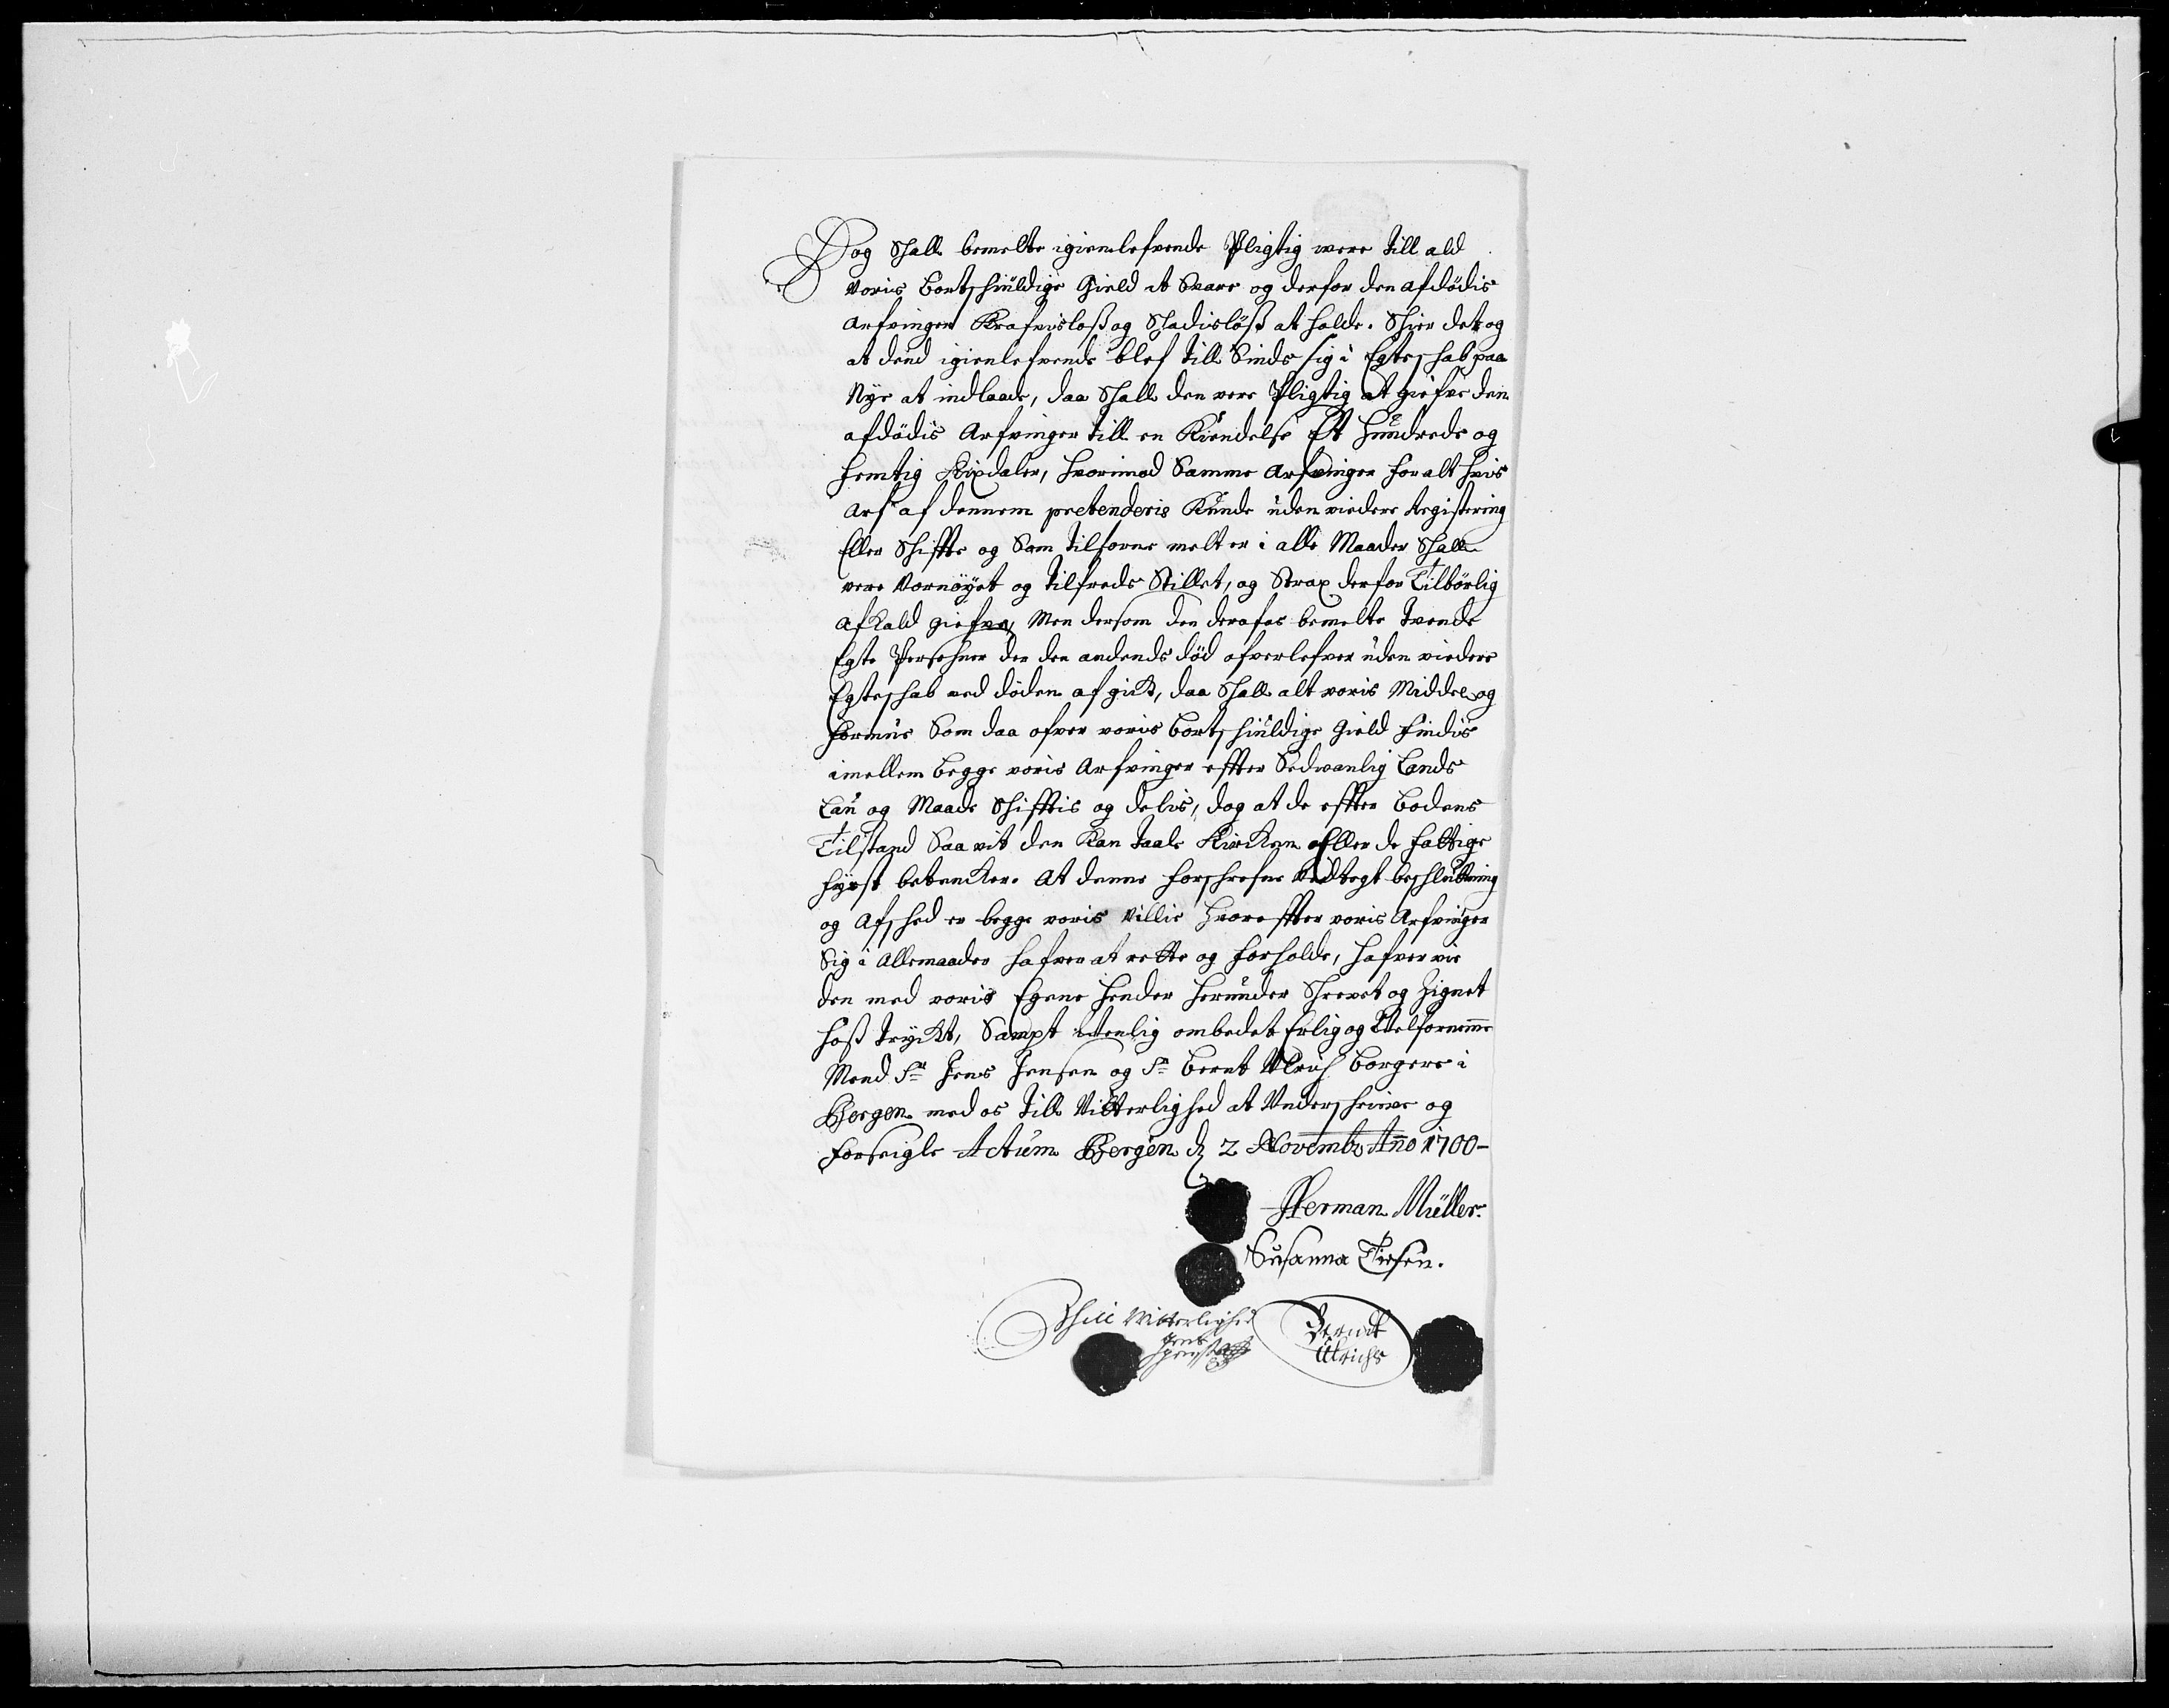 Dog Shall bemelte igienlefvende Pligtig were till ald
voris bortschiuldige Gield at Svare og derfor den afdödis
Arfvinger Krafvisloß og Skadislöß at holde. Skier det og
at dend igienlefvende blef till Sinds sig i Egteschab paa
Nye at indlaade, daa Shall den vere Pligtig at giefve den
afdödis Arfvinger till en Kiendelse Et Hundrede og
femtig Rixdaler, hvorimod Samme Arfvinger for alt hvis
Arf af dennem prætenderis Kunde uden viedere Registering
Eller Skiffte og Som tilforne melt er i alle Maader Shall
vere Vornöyet og tilfreds Stillet, og Strax derfor Tilbörlig
afkald giefve, Men dersom den deraf os bemelte Tvende
Egte Persohner der den andends död ofverlefver uden viedere
Egteschab ved döden afgick, daa Shall alt voris Middel og
formue Som daa ofver voris bortschiuldige Gield findis
imellem begge voris Arfvinger effter Sedvanlig Lands
Lau og Maade Skifftis og delis, dog at de effter Bodens
Tilstand Saavit den Kan taale Kircken Eller de fattige
hyrst betencker. At denne forschrefne Vedtegt beschluttning
og Afsched er begge voris villie hvoreffter voris Arfvinger
Sig i Allemaader hafver at rette og forholde, hafver vie
den med voris Egene hender herunder Skrevet og Zignet
hoß tryckt, Sampt venlig ombedet Erlig og Velfornemme
Mend Sr Jens Jensen og Sr Bernt Ulrich borgere i
Bergen med os till Vitterlighed at Underschrive og
forseigle Actum Bergen d 2 Novembr Año 1700-
Herman Müller.
Susanna Tiesen.
Thill Vitterlighed
Jens
Jensen
Berent
Ulrichs